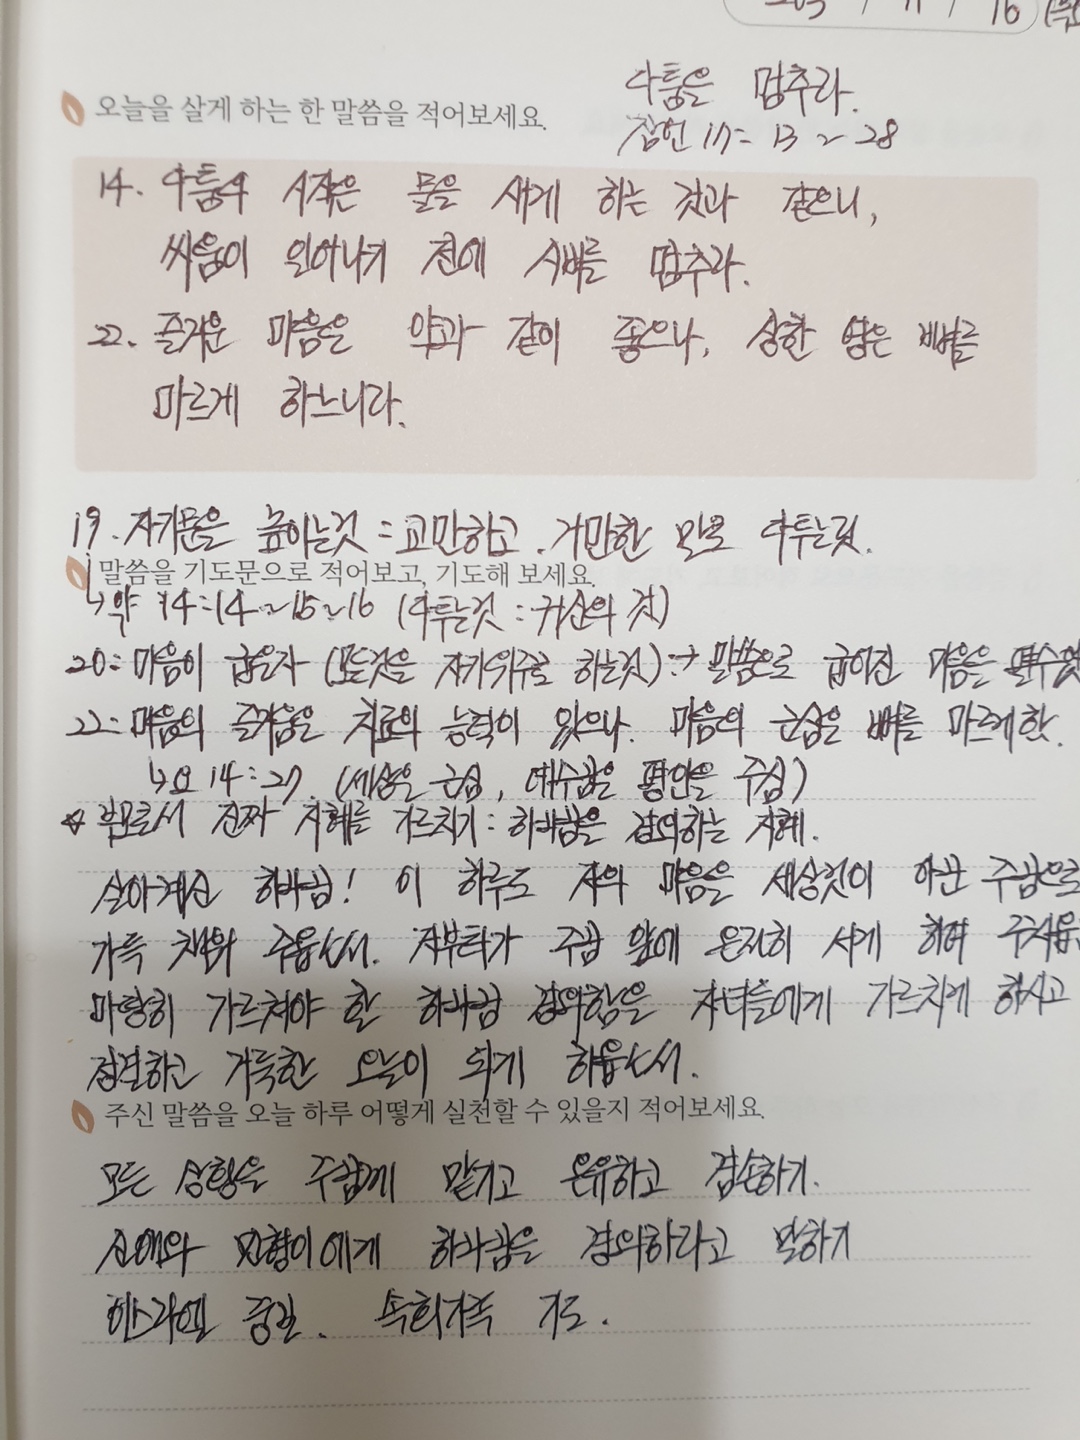 / 11 / 16
다툼은 멈추라.
오늘을 살게 하는 한 말씀을 적어보세요.
잠언 17: 13 ~ 28
14. 다툼의 시작은 물을 새게 하는 것과 같으니,
싸움이 일어나기 전에 시비를 멈추라.
22. 즐거운 마음은 약과 같이 좋으나, 상한 영은 뼈를
마르게 하느니라.
19. 자기문을 높이는것 = 교만하고, 거만한 말로 다투는것.
말씀을 기도문으로 적어보고, 기도해 보세요.
↳약 14:14~15~16 (다투는것 : 귀신의 것)
20: 마음이 굽은자 (모든것을 자기위주로 하는것) → 말씀으로 굽어진 마음은
22: 마음의 즐거움은 치료의 능력이 있으나. 마음의 근심은 뼈를 마르게한.
↳요 14:27. (세상은 근심, 예수님은 평안을 주심)
☆ 부모로서 진짜 지혜를 가르치기 : 하나님을 경외하는 지혜.
살아계신 하나님! 이 하루도 저의 마음을 세상것이 아닌 주님으로
가득 채워 주옵소서. 저부터가 주님 앞에 온전히 서게 하여 주시옵
마땅히 가르쳐야 할 하나님 경외함을 자녀들에게 가르치게 하시고
정결하고 거룩한 오늘이 되게 하옵소서.
주신 말씀을 오늘 하루 어떻게 실천할 수 있을지 적어보세요.
모든 상황을 주님께 맡기고 온유하고 겸손하기.
하나님을 경외하라고 말하기
이스라엘 중보. 속회가족 기도.